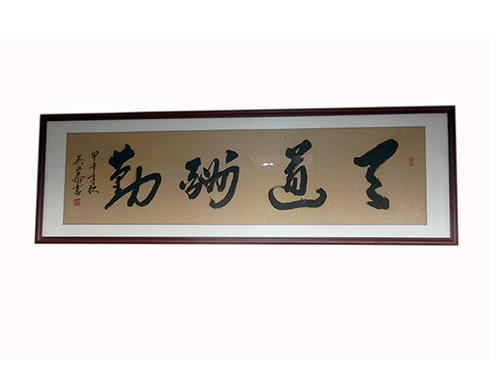 天道酬勤
甲午年秋